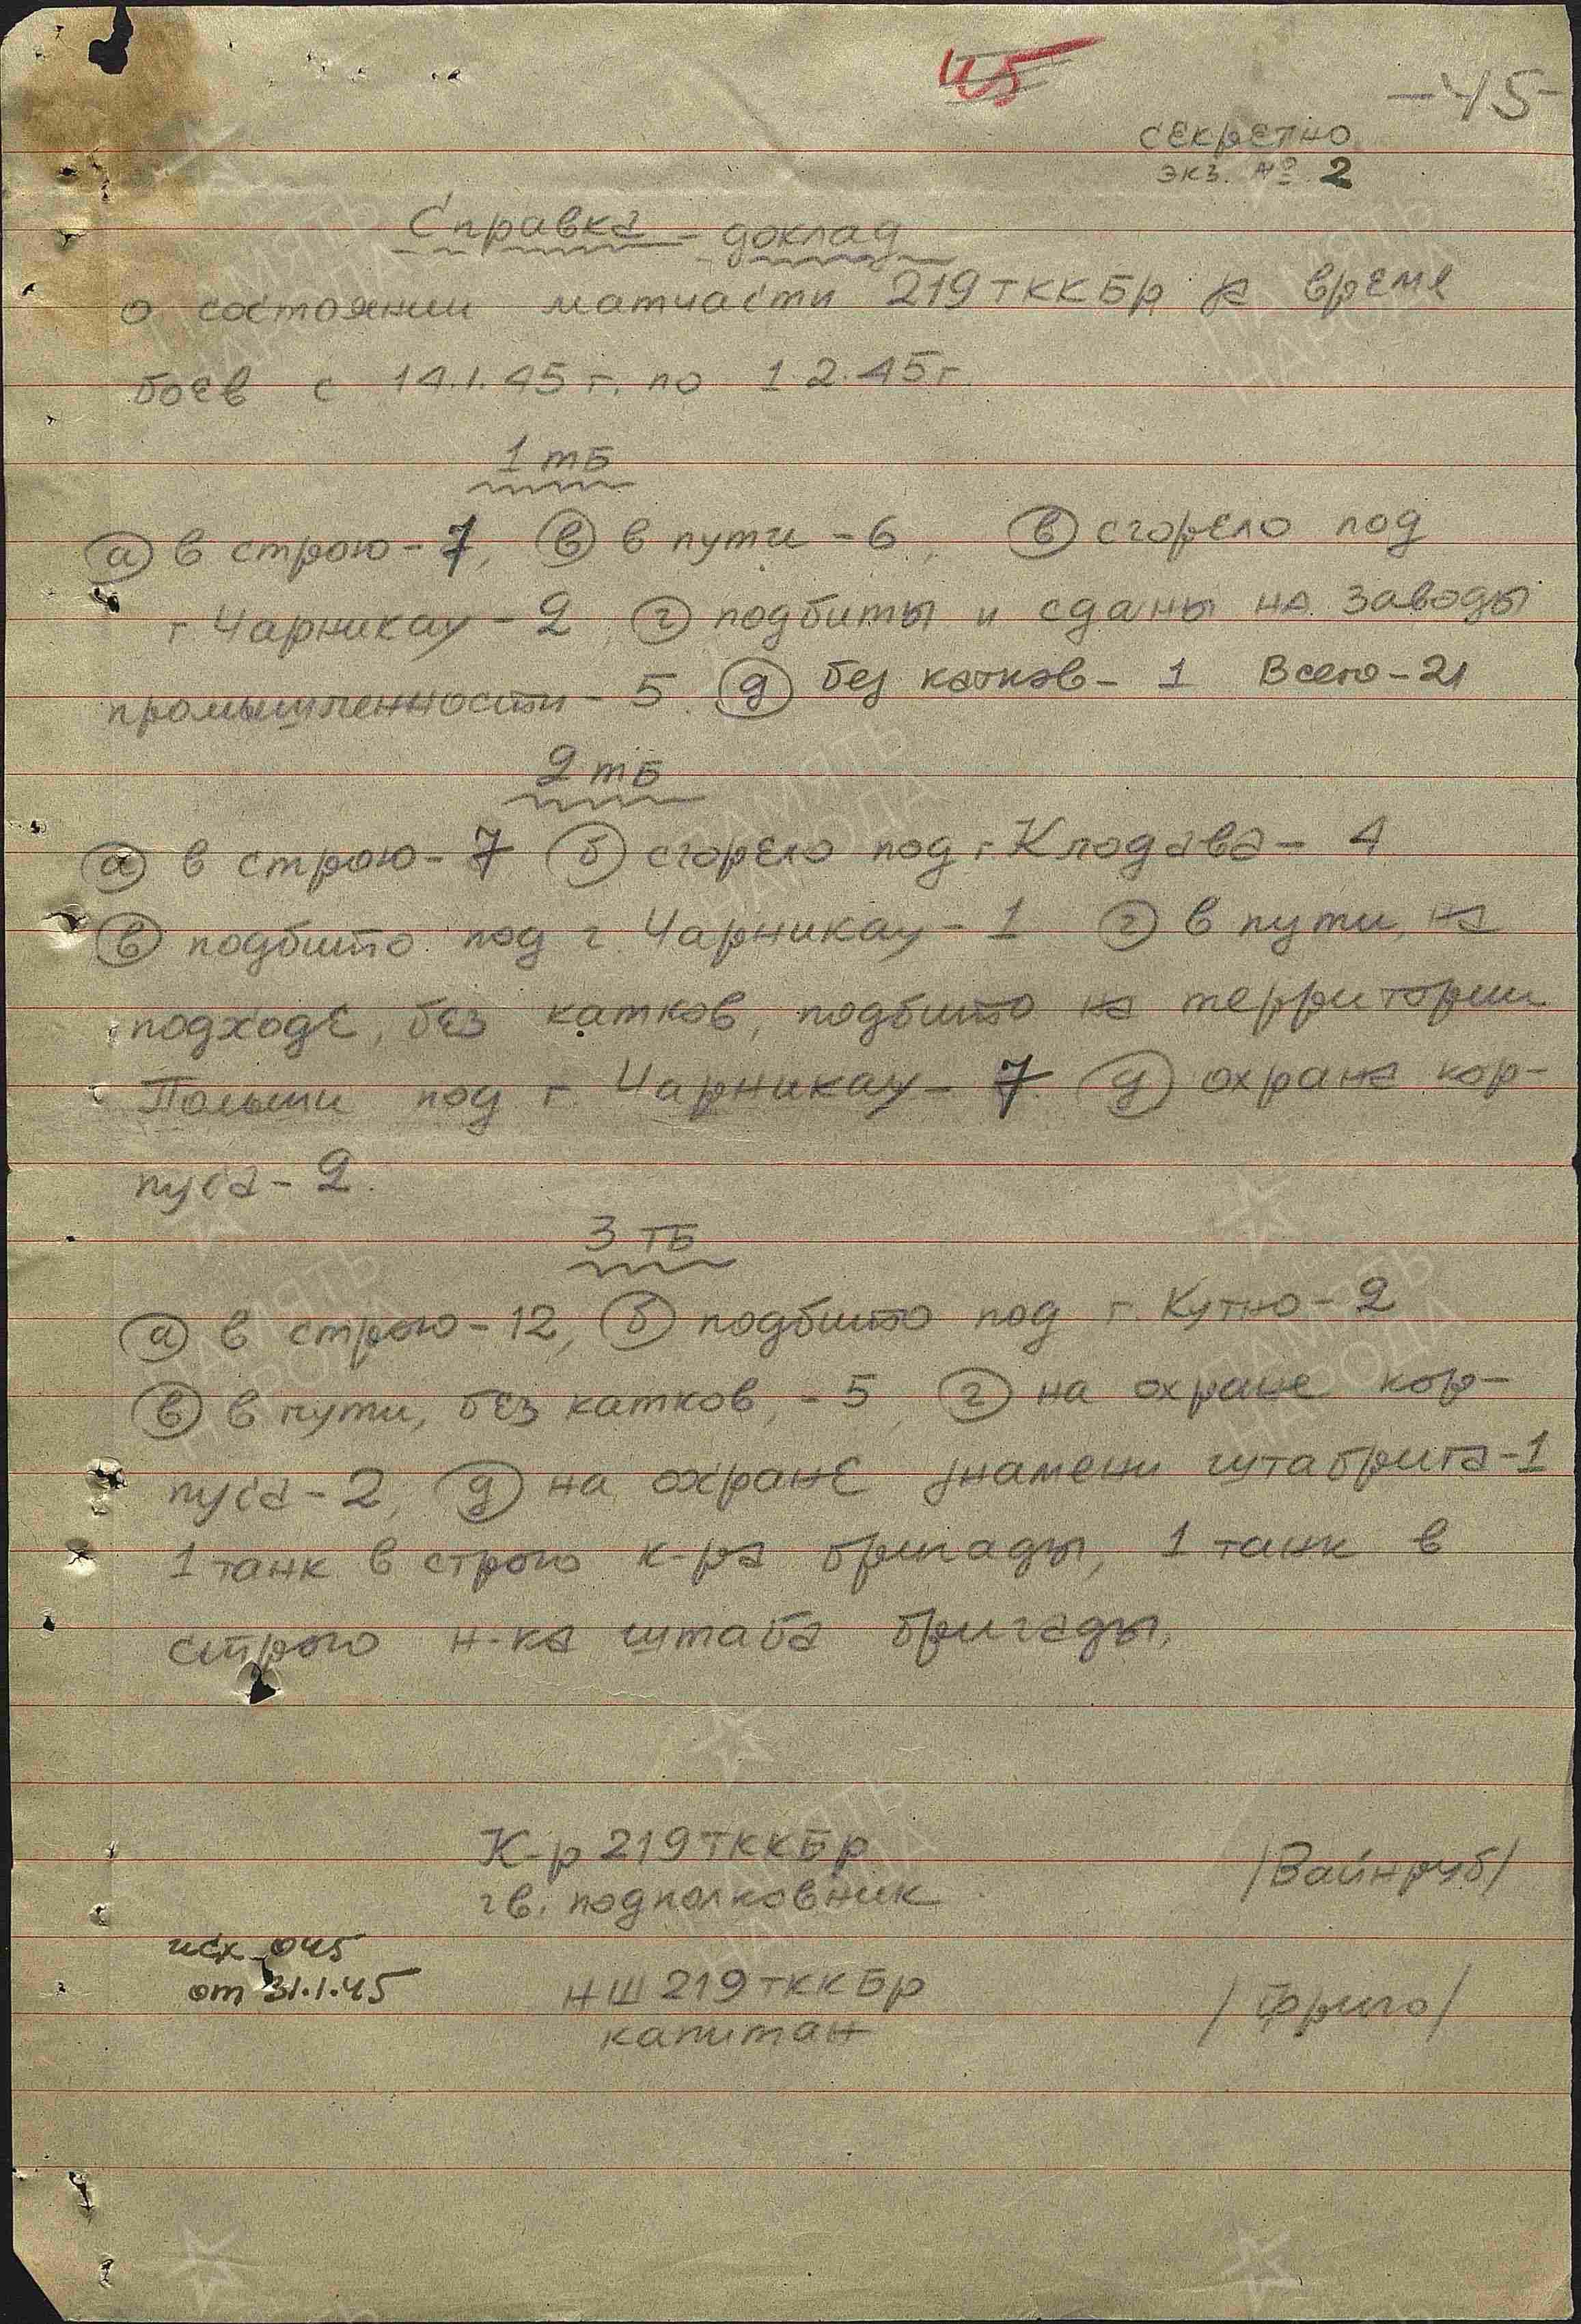 45
-45-
секретно
экз. № 2
Справка - доклад
о состоянии матчасти 219 ТККБр за время
боев с 14.1.45 г. по 1 2.45 г.
1 тБ
а в строю - 7, в в пути - 6, в сгорело под
г Чарникау - 2, г подбиты и сданы на заводы
промышленности - 5. д без катков - 1 Всего - 21
2 тБ
а в строю - 7 б сгорело под г Клодава - 4
в подбито под г. Чарникау - 1 г в пути, на
подходе, без катков, подбито на территории
Польши под г. Чарникау - 7. д охрана кор-
пуса - 2.
3 ТБ
а в строю - 12, б подбито под г. Кутно - 2
в в пути, без катков, - 5, г на охране кор-
пуса - 2, д на охране знамени штабрига - 1
1 танк в строю к-ра бригады, 1 танк в
строю н-ка штаба бригады.
К-р 219 ТККБр
гв. подполковник
/Вайнруб/
исх 045
от 31.1.45
НШ 219 ТККБр
капитан
/Фриго/